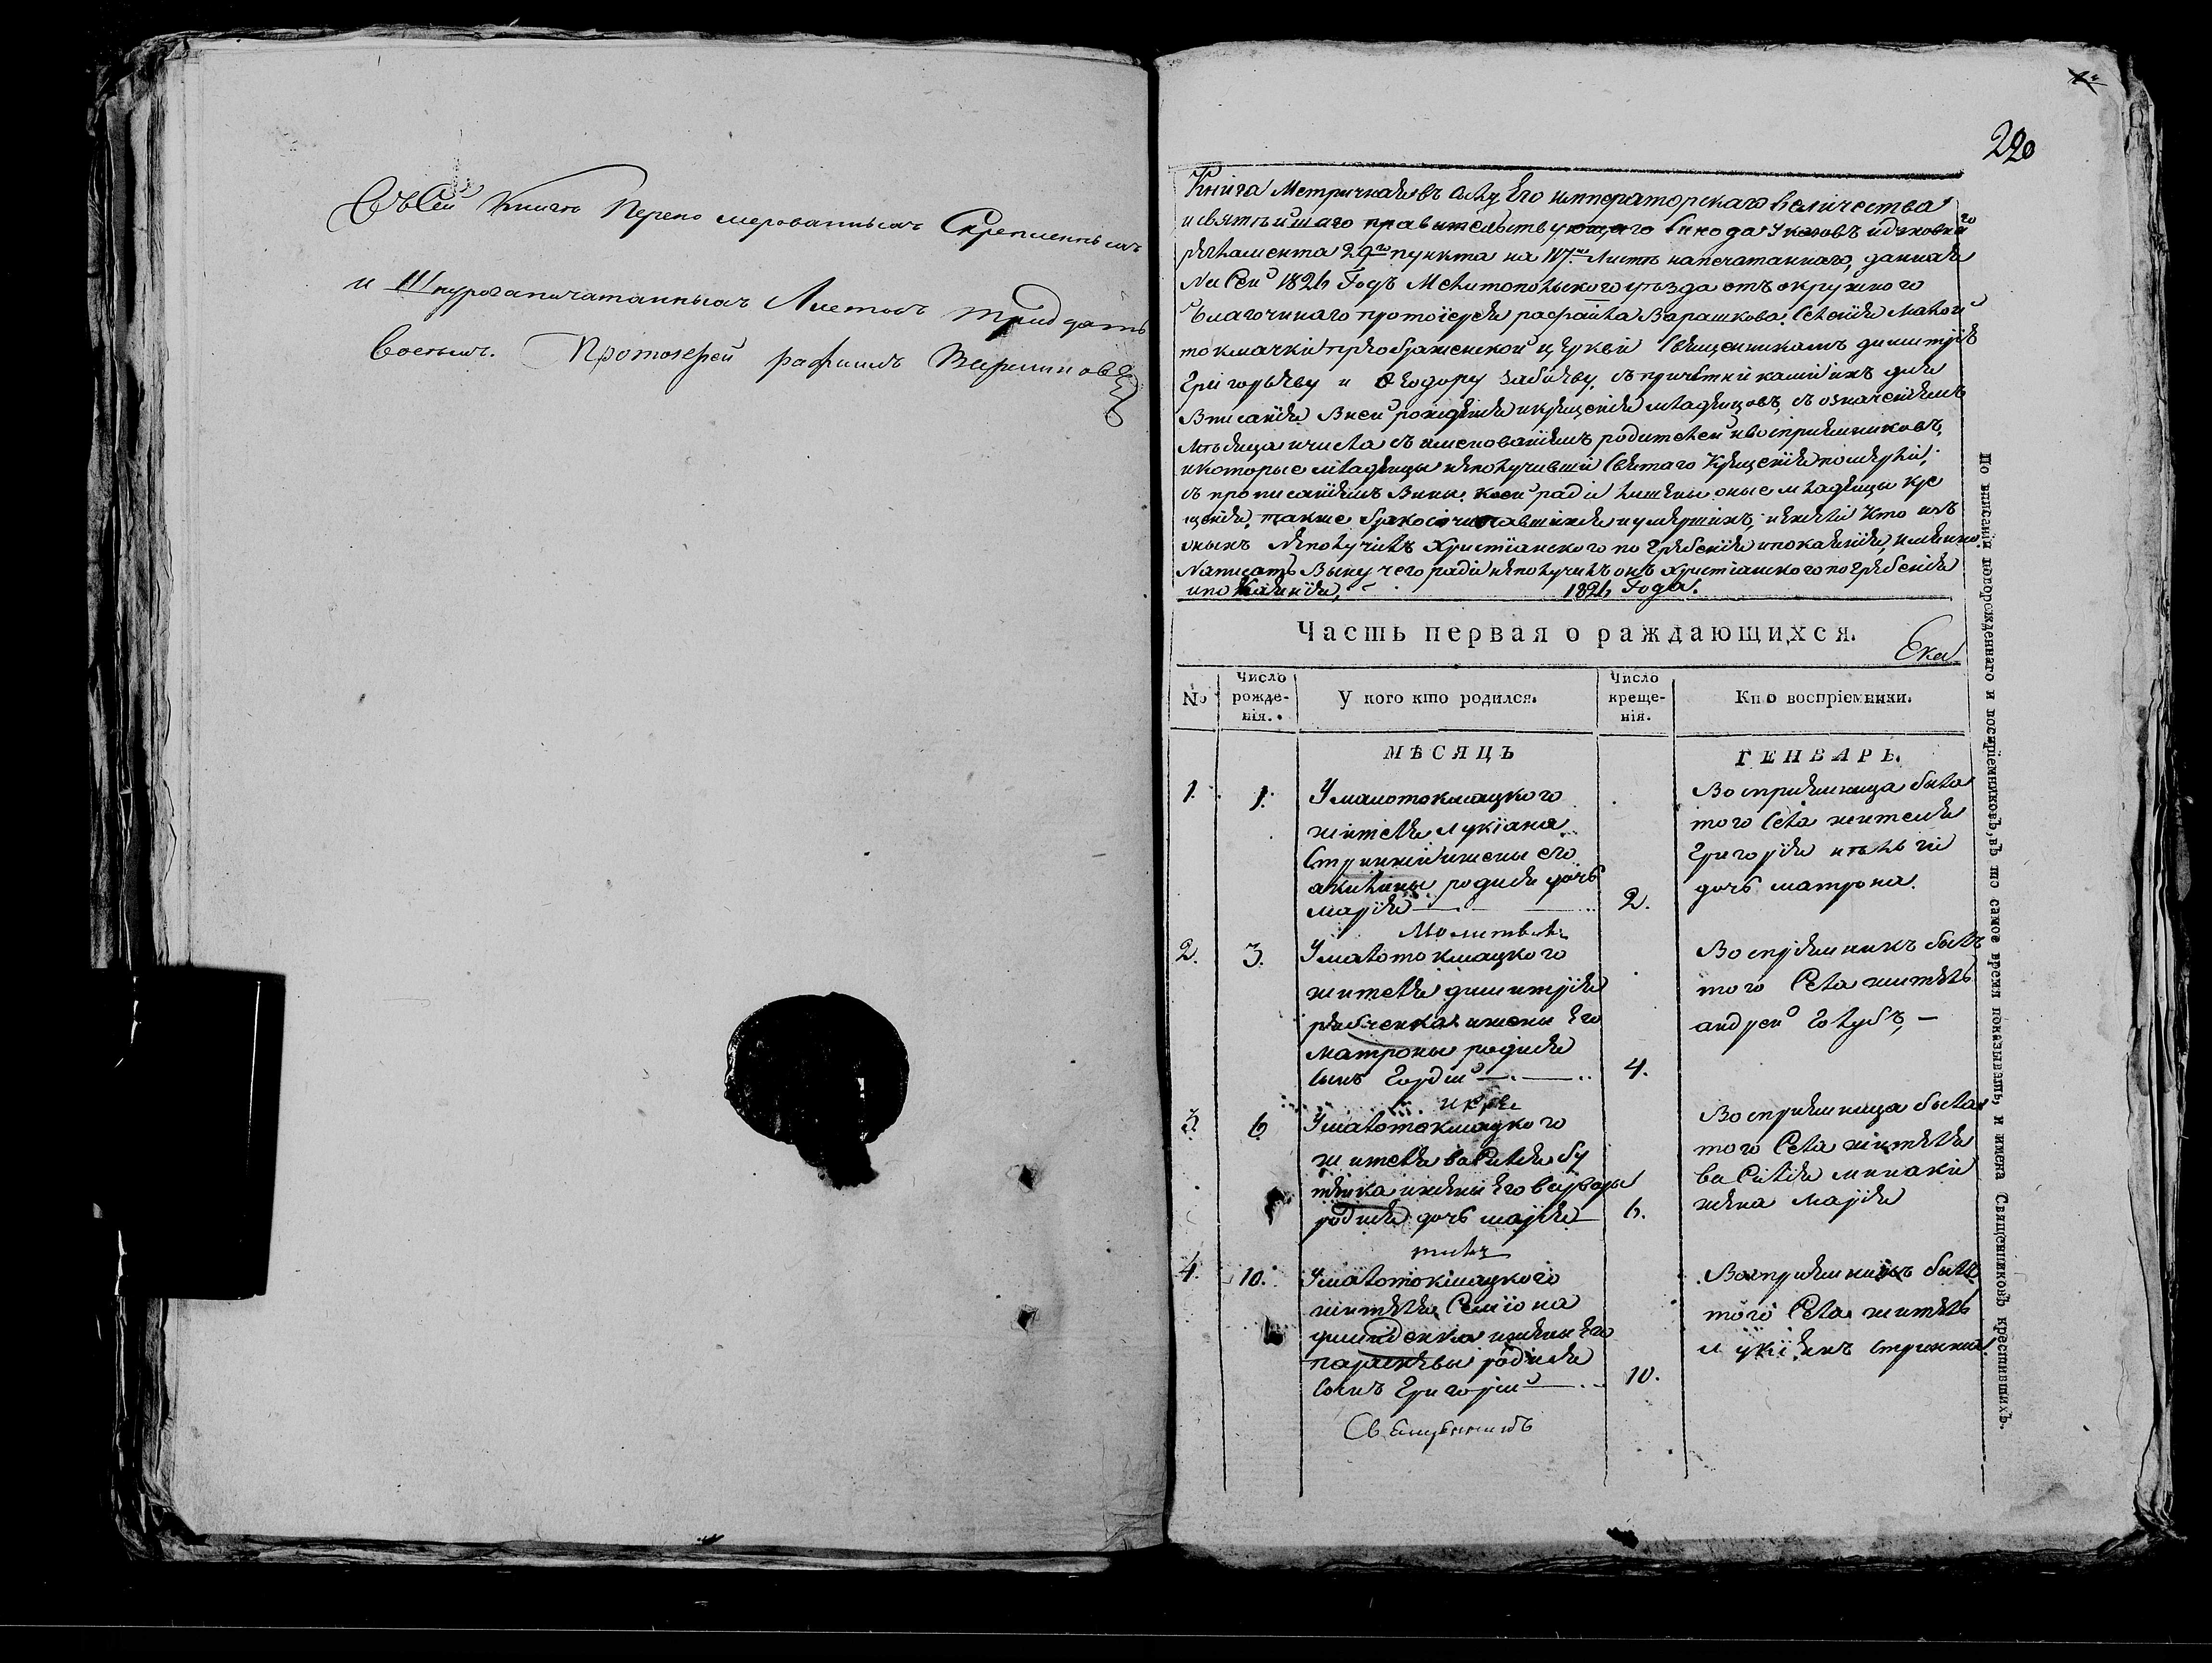 Въ Сей Книге Переномерованныхъ Скрепленныхъ
и Шнурозапечатанныхъ Листовъ тридцать
восемь. Протоіерей рафаилъ
220
Книга Метричная въ силу Его императорскаго величества
и святѣйшаго правительствующаго Синода указовъ и духовнаго
регламента 29го пункта на 117м Листѣ напечатаннаго, данная
На Сей 1826 Годъ Мелитопольского уѣзда отъ окружного
благочиннаго протоіерея рафаила Варашкова. Селенія малой
токмачки преображенской церкви Священникамъ димитрію
григорьеву и Ѳеодору забаеву, съ причетниками ихъ для
вписанія в ней рожденія и крещенія младенцовъ, съ означеніемъ
мѣсяца и числа съ именованіемъ родителей и воспріемниковъ,
и которые младенцы неполучивши Святаго Крещенія померли,
съ прописаніемъ вины коей ради лишены оные младенцы кре
щенія, также бракосочитавшихся и умершихъ, и ежели кто изъ
оныхъ неполучилъ Христіанского погребенія и покаянія, именно
Написать вину чего ради неполучилъ онъ христіанского погребенія
и покаянія, 1826 Года.
Часть первая о раждающихся.
Ека
№ Число рожде-нія. У кого кто родился. Число креще-нія. Кто воспріемники.
МѢСЯЦЪ ГЕНВАРЬ.
1. 1. У малотокмацкого
жителя лукіана
Стрижкы и жены его
акилины родися дочь
марія 2.
Воспріемница была
того Села жителя
григорія
дочь матрона.
Молитвов.
2. 3. У малотокмацкого
жителя димитрія
рябченка и жены его
матроны родися
сынъ Гордій 4.
Воспріемникъ былъ
того Села житель
андрей голубъ,
и кре
3. 6 У малотокмацкого
жителя василія бу
тенка и жены его варвары
родися дочь марія 6.
Воспріемница была
того Села жителя
василія
жена марія
4. 10. У малотокмацкого
жителя Семіона
и жены его
параскевы родися
сынъ григорій 10.
Воспріемникъ былъ
того Села житель
лукіянъ
По вписаніи новорожденнаго и воспріемниковъ, въ то самое время показывать, и имена Священниковъ крестившихъ.